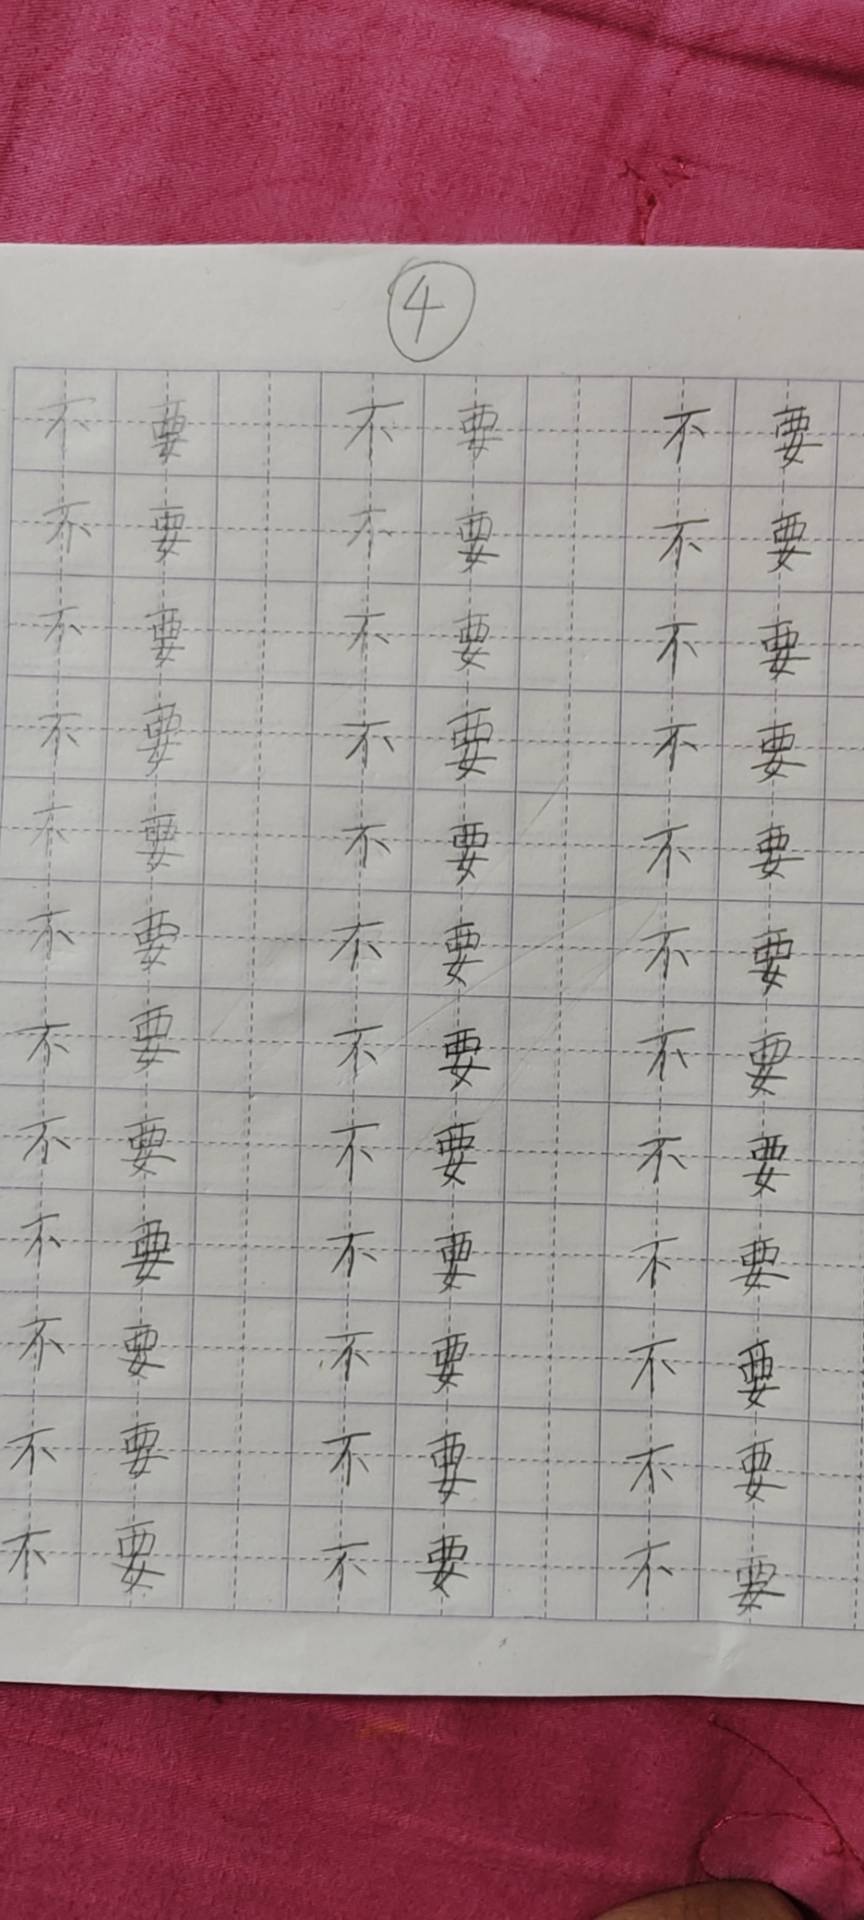 ④
不要 不要 不要
不要 不要 不要
不要 不要 不要
不要 不要 不要
不要 不要 不要
不要 不要 不要
不要 不要 不要
不要 不要 不要
不要 不要 不要
不要 不要 不要
不要 不要 不要
不要 不要 不要